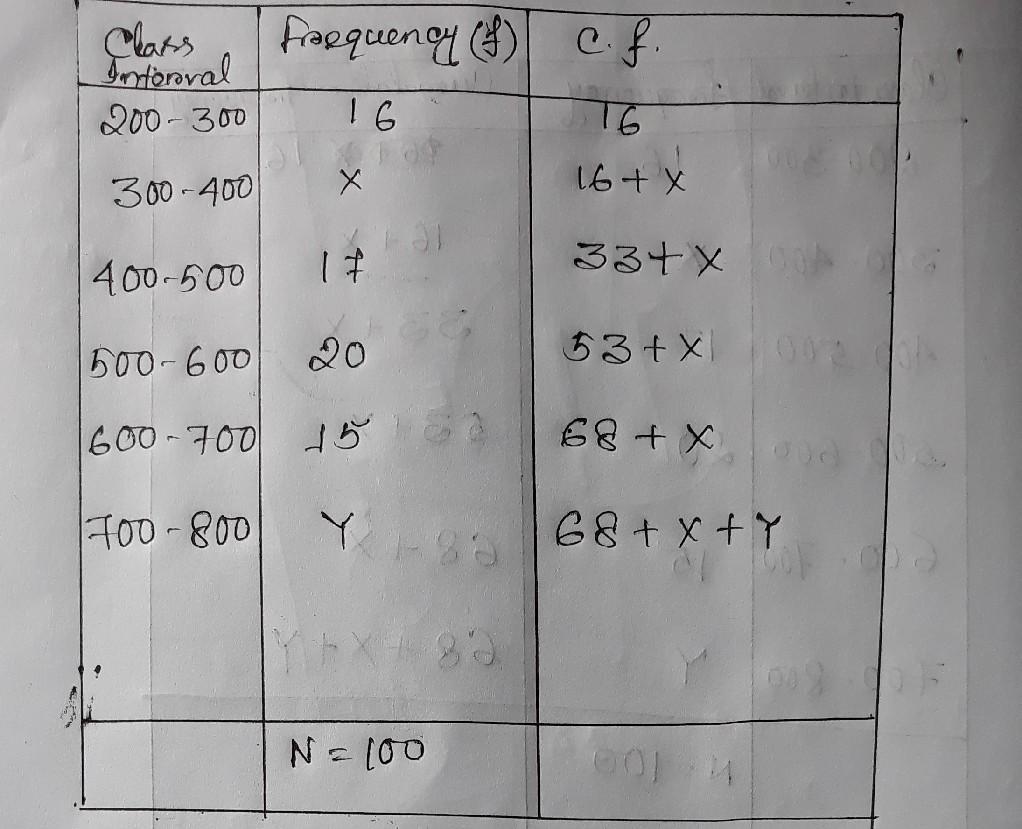 Class Interval Frequency (f) C.f.
200-300 16 16
300-400 X 16+X
400-500 17 33+X
500-600 20 53+X
600-700 15 68+X
700-800 Y 68+X+Y
N=100